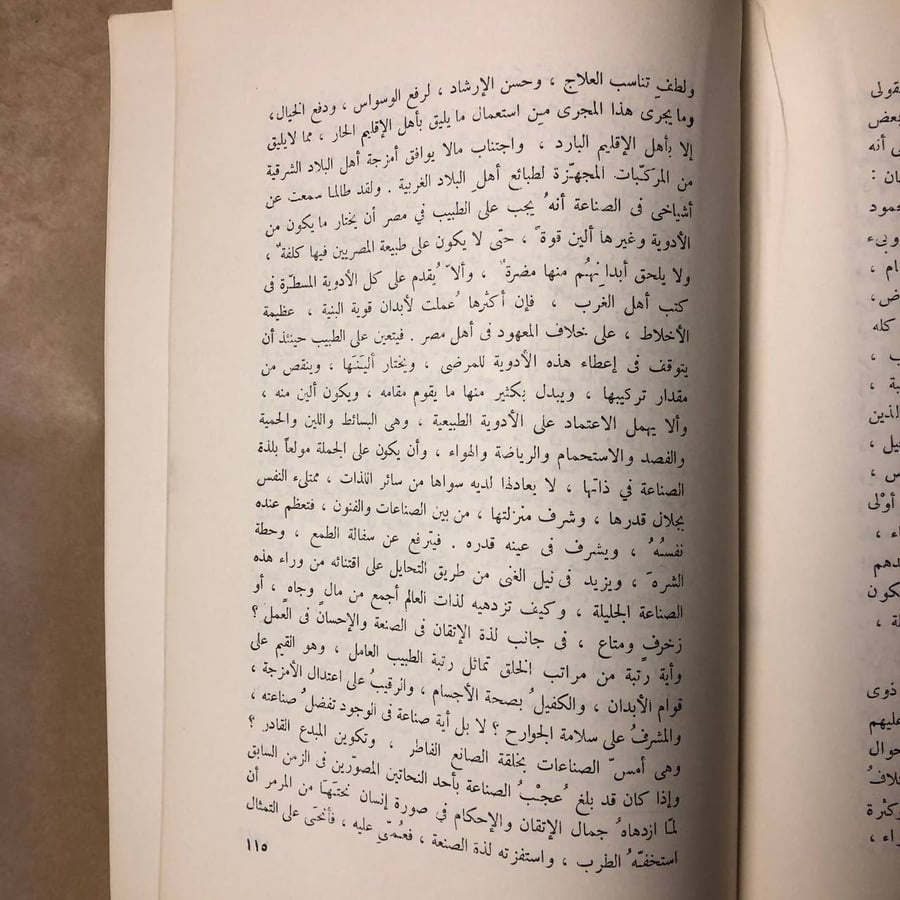 ولطفِ تناسب العلاج ، وحسن الإرشاد ، لرفع الوسواس ، ودفع الخيال ،
وما يجرى هذا المجرى من استعمال ما يليق بأهل الإقليم الحار ، مما لايليق
إلا بأهل الإقليم البارد ، واجتناب مالا يوافق أمزجة أهل البلاد الشرقية
من المركّبات المجهّزة لطبائع أهل البلاد الغربية . ولقد طالما سمعت عن
أشياخى فى الصناعة أنهُ يجب على الطبيب في مصر أن يختار ما يكون من
الأدوية وغيرها ألين قوة ً ، حتّى لا يكون على طبيعة المصريين فيها كلفة ٌ ،
ولا يلحق أبدانَهُم منها مضرة ٌ ، وألا ّ يُقدم على كل الأدوية المسطّرة فى
كتب أهل الغرب ، فإن أكثرها عُملت لأبدان قوية البنية ، عظيمة
الأخلاط ، على خلاف المعهود فى أهل مصر . فيتعين على الطبيب حينئذ أن
يتوقف فى إعطاء هذه الأدوية للمرضى ، ويختار أليَنَها ، وينقص من
مقدار تركيبها ، ويبدل بكثير منها ما يقوم مقامه ، ويكون ألين منه ،
وألا يهمل الاعتماد على الأدوية الطبيعية ، وهى البسائط واللين والحمية
والفصد والاستحمام والرياضة والهواء ، وأن يكون على الجملة مولعاً بلذة
الصناعة في ذاتها ، لا يعادلها لديه سواها من سائر اللذات ، ممتلىء النفس
بجلال قدرها ، وشرف منزلتها ، من بين الصناعات والفنون ، فتعظم عنده
نفسُهُ ، ويشرف فى عينه قدره . فيترفع عن سفالة الطمع ، وحطة
الشره َ ، ويزيد فى نيل الغنى من طريق التحايل على اقتنائه من وراء هذه
الصناعة الجليلة ، وكيف تزدهيه لذات العالم أجمع من مالٍ وجاهٍ ، أو
زخرفٍ ومتاع ، فى جانب لذة الإتقان فى الصنعة والإحسان فى العمل ؟
وأية رتبة من مراتب الخلق تماثل رتبة الطبيب العامل ، وهو القيم على
قوام الأبدان ، والكفيلُ بصحة الأجسام ، والرقيبُ على اعتدال الأمزجة ،
والمشرفُ على سلامة الجوارح ؟ لا بل أية صناعة فى الوجود تفضلُ صناعته ،
وهى أمسّ الصناعات بخلقة الصانع الفاطر ، وتكوين المبدع القادر ؟
وإذا كان قد بلغ عُجبُ الصناعة بأحد النحاتين المصوّرين فى الزمن السابق
لمّا ازدهاهُ جمال الإتقان والإحكام في صورة إنسان نحتَها من المرمر أن
استخفّهُ الطرب ، واستفزته لذة الصنعة ، فعُمّي عليه ، فأنحنى على التمثال
١١٥
قولى
بعض
ى أنه
ان :
حمود
وبىء
ام ،
ض،
كله
ب ،
بة ،
الذين
يل ،
س ،
أوْلى
اء ،
دهم
كون
لة ،
ذوى
عليهم
حوال
لافُ
كثرة
راء ،